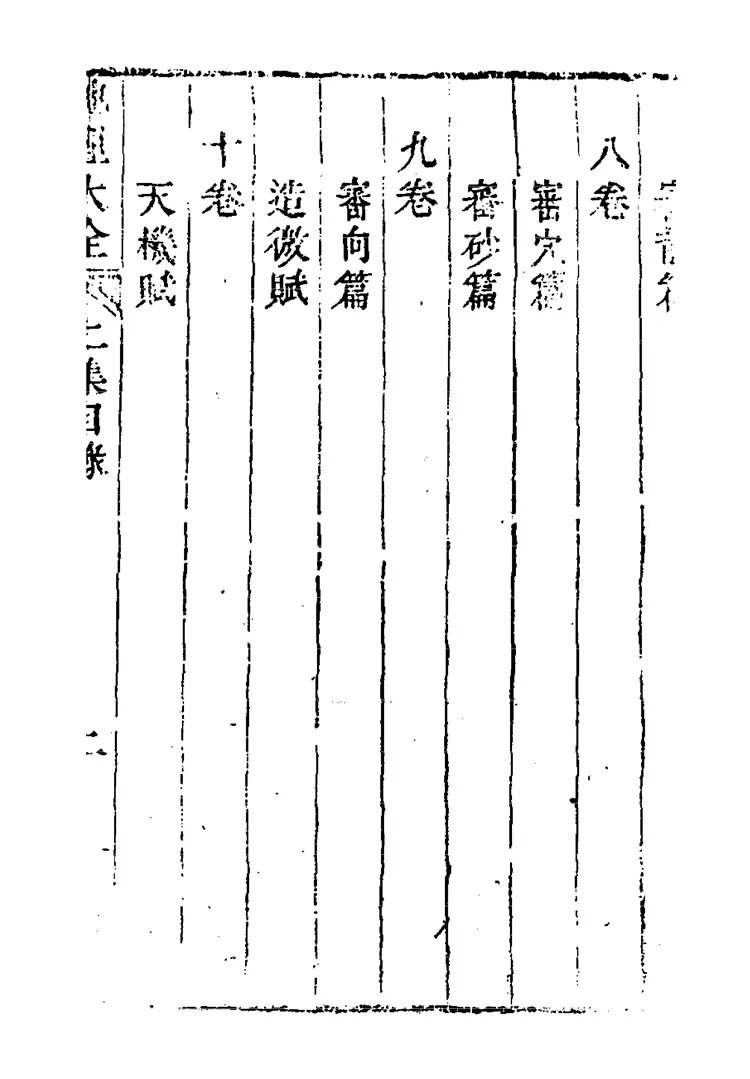 八卷
審穴篇
審砂篇
九卷
審向篇
造微賦
十卷
天機賦
地理大全
二集目錄
二